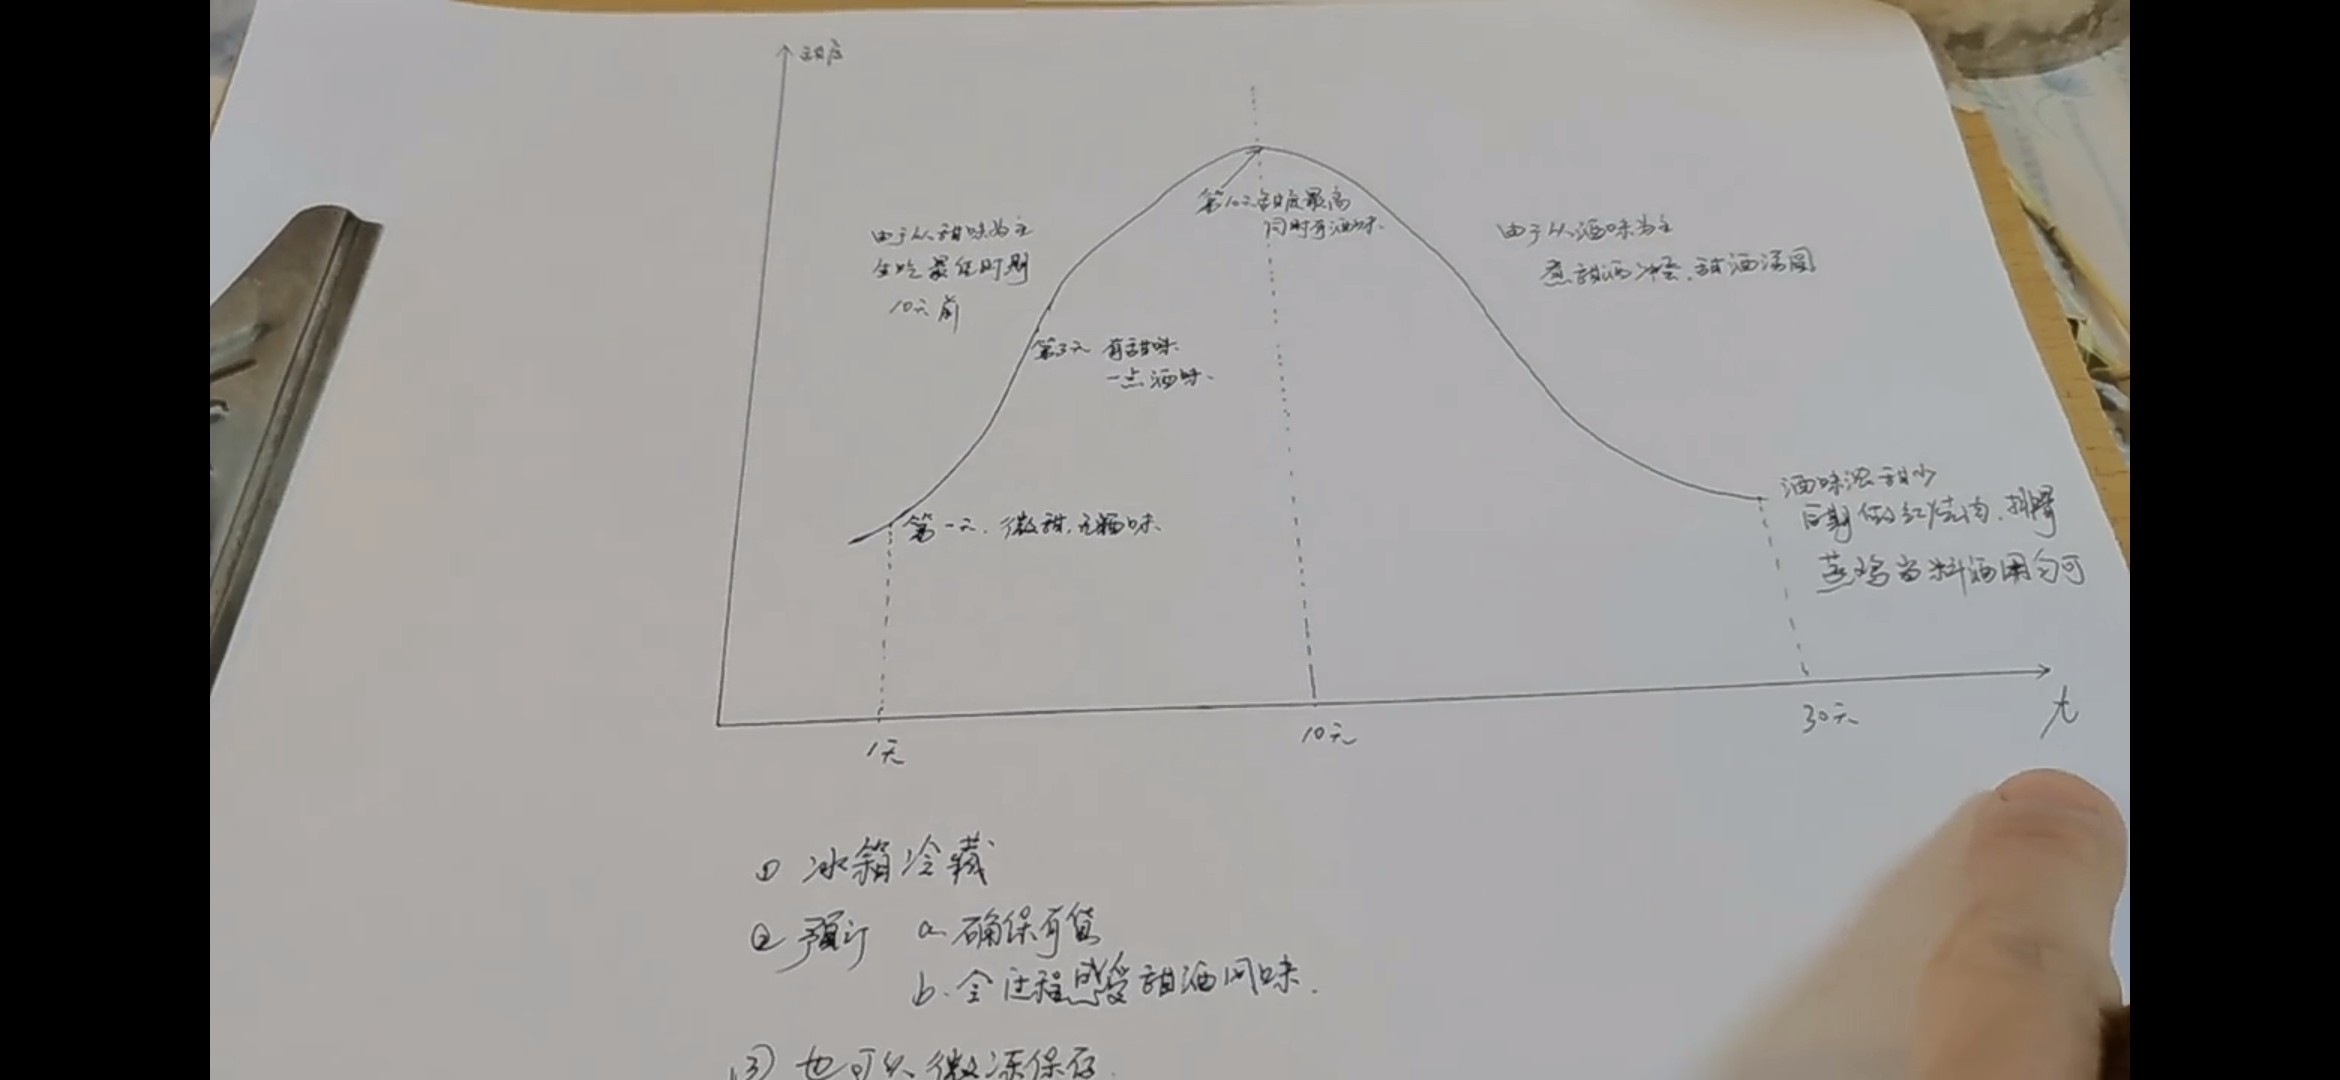 甜度
第10天甜度最高
同时有酒味.
由于以甜味为主
生吃最佳时期
10天前
由于以酒味为主
煮甜酒冲蛋、甜酒汤圆
第3天 有甜味
一点酒味、
酒味浓甜少
后期做红烧肉、排骨
蒸鸡当料酒用勻可
第一天、微甜,无酒味
1天
10天
30天
t
① 冰箱冷藏
② 预订 a. 确保有货
b. 全过程感受甜酒风味.
③ 也可以微冻保存.